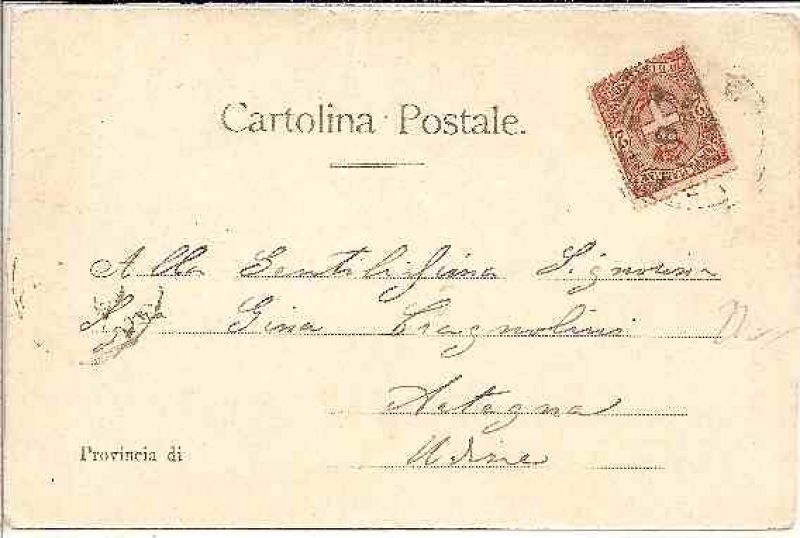 Cartolina Postale.
Alla Gentilissima Signorina
Gina Cragnolini
Artegna
Provincia di Udine